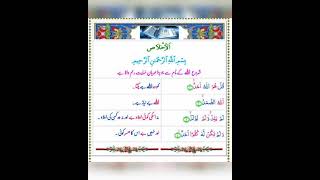 الاخلاص
بِسْمِ اللّٰهِ الرَّحْمٰنِ الرَّحِيْمِ
شروع اللہ کے نام سے جو بڑا مہربان نہایت رحم والا ہے
قُلْ هُوَ اللّٰهُ اَحَدٌ کہو اللہ ہے یکتا۔
اَللّٰهُ الصَّمَدُ اللہ بے نیاز ہے۔
لَمْ يَلِدْ وَلَمْ يُوْلَدْ نہ اسکی کوئی اولاد ہے اور نہ وہ کسی کی اولاد۔
وَلَمْ يَكُنْ لَّهٗ كُفُوًا اَحَدٌ اور نہیں ہے اس کا ہمسر کوئی۔